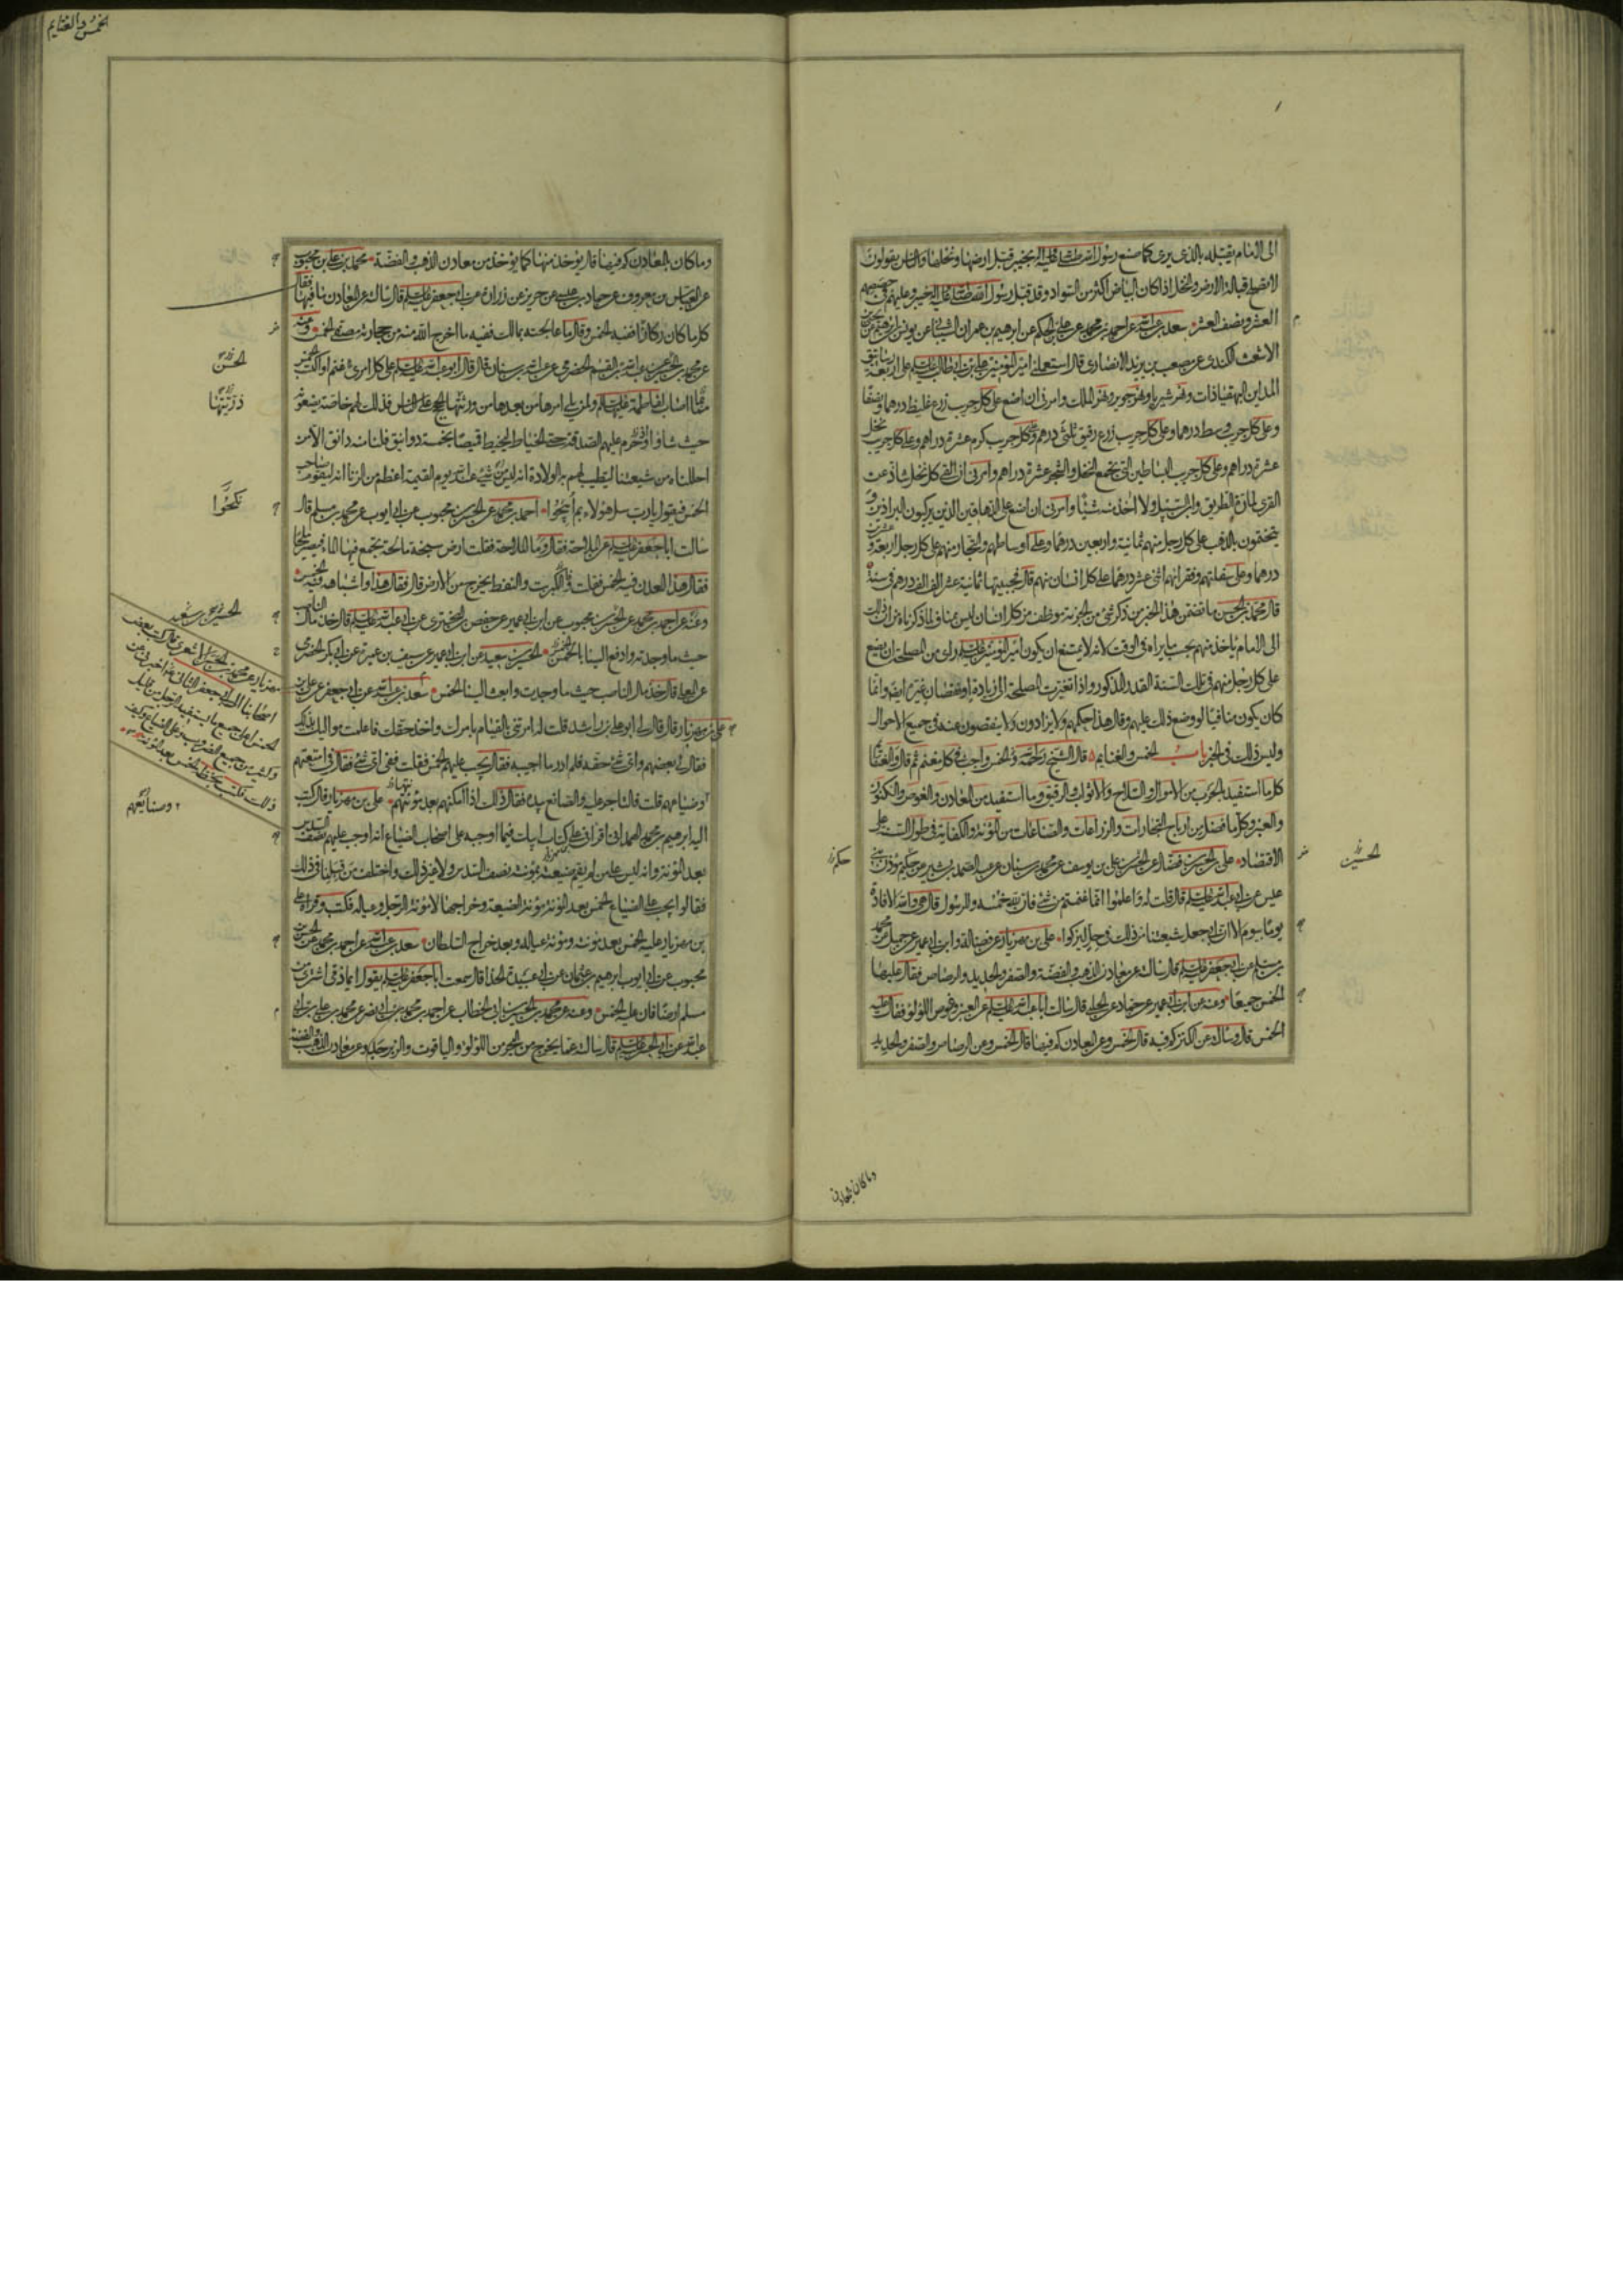 الى الامام يقبله بالذى يرى كما صنع رسول الله صلى الله عليه وآله بخيبر قبل ارضها ونخلها والناس يقولون
لا تصلح قبالة الارض والنخل اذا كان البياض اكثر من السواد وقد قبل رسول الله صلى الله عليه وآله خيبر وعليهم فى حصصهم
العشر ونصف العشر سعد بن عبد الله عن احمد بن محمد عن على بن الحكم عن ابرهيم بن عمران الشيبانى عن يونس بن ابرهيم عن يحيى بن
الاشعث الكندى عن مصعب بن يزيد الانصارى قال استعملنى امير المؤمنين على بن ابى طالب عليه السلم على اربعة رساتيق
المداين البهقياذات ونهر شيريا ونهر جوير ونهر الملك وامرنى ان اضع على كل جريب زرع غليظ درهما ونصفا
وعلى كل جريب وسط درهما وعلى كل جريب زرع رقيق ثلثى درهم وعلى كل جريب كرم عشرة دراهم وعلى كل جريب نخل
عشرة دراهم وعلى كل جريب البساتين التى تجمع النخل والشجر عشرة دراهم وامرنى ان القى كل نخل شاذ عن
القرى لمارة الطريق وابن السبيل ولا اخذ منه شيئا وامرنى ان اضع على الدهاقين الذين يركبون البراذين و
يتختمون بالذهب على كل رجل منهم ثمانية واربعين درهما وعلى اوساطهم والتجار منهم على كل رجل اربعة وعشرين
درهما وعلى سفلتهم وفقرائهم اثنى عشر درهما على كل انسان منهم قال فجبيتها ثمانية عشر الف الف درهم فى سنة
قال محمد بن الحسن ما تضمن هذا الخبر من ذكر شئ من الجزية موظف على كل انسان ليس بمناف لما ذكرناه من ان ذلك
الى الامام ياخذ منهم بحسب ما يراه فى الوقت لانه لا يمتنع ان يكون امير المؤمنين عليه السلم راى من المصلحة ان يضع
على كل رجل منهم فى تلك السنة القدر المذكور واذا تغيرت المصلحة الى زيادة او نقصان غيره ايضا وانما
كان يكون منافيا لو وضع ذلك عليهم وقال هذا حكمهم ولا يزادون ولا ينقصون عنه فى جميع الاحوال
وليس ذلك فى الخبر باب الخمس والغنايم قال الشيخ رحمه الله والخمس واجب فى كل مغنم ثم قال والغنائم
كل ما استفيد بالحرب من الاموال والسلاح والاثواب والرقيق وما استفيد من المعادن والغوص والكنوز
والعنبر وكل ما فضل من ارباح التجارات والزراعات والصناعات من المؤنة والكفاية فى طول السنة على
الاقتصاد على بن الحسن بن فضال عن الحسن بن على بن يوسف عن محمد بن سنان عن عبد الصمد بن بشير عن حكيم مؤذن بنى
عبس عن ابى عبد الله عليه السلم قال قلت له واعلموا انما غنمتم من شئ فان لله خمسه وللرسول قال هى والله الافادة
يوما بيوم الا ان ابى جعل شيعتنا من ذلك فى حل ليزكوا على بن مهزيار عن فضالة وابن ابى عمير عن جميل عن محمد
بن مسلم عن ابى جعفر عليه السلم قال سالته عن معادن الذهب والفضة والصفر والحديد والرصاص فقال عليها
الخمس جميعا وعنه عن ابن ابى عمير عن حماد عن الحلبى قال سالت ابا عبد الله عليه السلم عن العنبر وغوص اللؤلؤ فقال عليه
الخمس قال وسالته عن الكنز كم فيه قال الخمس وعن المعادن كم فيها قال الخمس وعن الرصاص والصفر والحديد
الحسين
حكم
وما كان بالمعادن
الخمس والغنايم
وما كان بالمعادن كم فيها قال يؤخذ منها كما يؤخذ من معادن الذهب والفضة محمد بن على بن محبوب
عن العباس بن معروف عن حماد بن عيسى عن حريز عن زرارة عن ابى جعفر عليه السلم قال سالته عن المعادن ما فيها فقال
كل ما كان ركازا ففيه الخمس وقال ما عالجته بمالك ففيه ما اخرج الله منه من حجارته مصفى الخمس وعنه
عن محمد بن الحسين عن عبد الله بن القسم الحضرمى عن عبد الله بن سنان قال قال ابو عبد الله عليه السلم على كل امرئ غنم او اكتسب الخمس
مما اصاب لفاطمة عليها السلم ولمن يلى امرها من بعدها من ورثتها الحجج على الناس فذلك لهم خاصة يضعونه
حيث شاؤا وحرم عليهم الصدقة حتى الخياط ليخيط قميصا بخمسة دوانيق فلنا منه دانق الا من
احللناه من شيعتنا لتطيب لهم به الولادة انه ليس من شئ عند الله يوم القيمة اعظم من الزنا انه ليقوم صاحب
الخمس فيقول يا رب سل هؤلاء بم ابيحوا احمد بن محمد عن الحسن بن محبوب عن ابى ايوب عن محمد بن مسلم قال
سالت ابا جعفر عليه السلم عن الملاحة فقال وما الملاحة فقلت ارض سبخة مالحة يجتمع فيها الماء فيصير ملحا
فقال هذا المعدن فيه الخمس فقلت والكبريت والنفط يخرج من الارض قال فقال هذا واشباهه فيه الخمس
وعنه عن احمد بن محمد عن الحسن بن محبوب عن ابن ابى عمير عن حفص بن البخترى عن ابى عبد الله عليه السلم قال خذ مال الناصب
حيث ما وجدته وادفع الينا بالخمس الحسين بن سعيد عن ابن ابى عمير عن سيف بن عميرة عن ابى بكر الحضرمى
عن المعلى قال خذ مال الناصب حيث ما وجدت وابعث الينا الخمس سعد بن عبد الله عن ابى جعفر عن على بن
على بن مهزيار قال قال لى ابو على بن راشد قلت له امرتنى بالقيام بامرك واخذ حقك فاعلمت مواليك بذلك
فقال لى بعضهم واى شئ حقه فلم ادر ما اجيبه فقال يجب عليهم الخمس فقلت ففى اى شئ فقال فى امتعتهم
وضياعهم قلت فالتاجر عليه والصانع بيده فقال ذلك اذا امكنهم بعد مؤنتهم على بن مهزيار قال كتب
اليه ابرهيم بن محمد الهمدانى اقرانى على كتاب ابيك فيما اوجبه على اصحاب الضياع انه اوجب عليهم نصف السدس
بعد المؤنة وانه ليس على من لم يقم ضيعته بمؤنته نصف السدس ولا غير ذلك واختلف من قبلنا فى ذلك
فقالوا يجب على الضياع الخمس بعد المؤنة مؤنة الضيعة وخراجها لا مؤنة الرجل وعياله فكتب وقراه على
بن مهزيار عليه الخمس بعد مؤنته ومؤنة عياله وبعد خراج السلطان سعد بن عبد الله عن احمد بن محمد عن الحسن بن
محبوب عن ابى ايوب ابرهيم بن عثمان عن ابى عبيدة الحذا قال سمعت ابا جعفر عليه السلم يقول ايما ذمى اشترى من
مسلم ارضا فان عليه الخمس وعنه عن محمد بن الحسين بن ابى الخطاب عن احمد بن محمد بن ابى نصر عن محمد بن على بن ابى
عبد الله عن ابى الحسن عليه السلم قال سالته عما يخرج من البحر من اللؤلؤ والياقوت والزبرجد وعن معادن الذهب والفضة
الحسن
ذريتها
نكحوا
الحسين بن سعيد
مهزيار عن محمد بن الحسن الاشعرى قال كتب بعض
اصحابنا الى ابى جعفر الثانى اخبرنى عن
الخمس اعلى جميع ما يستفيد الرجل من قليل
وكثير من جميع الضروب وعلى الضياع وكيف
ذلك فكتب بخطه الخمس بعد المؤنة
وصنايعهم